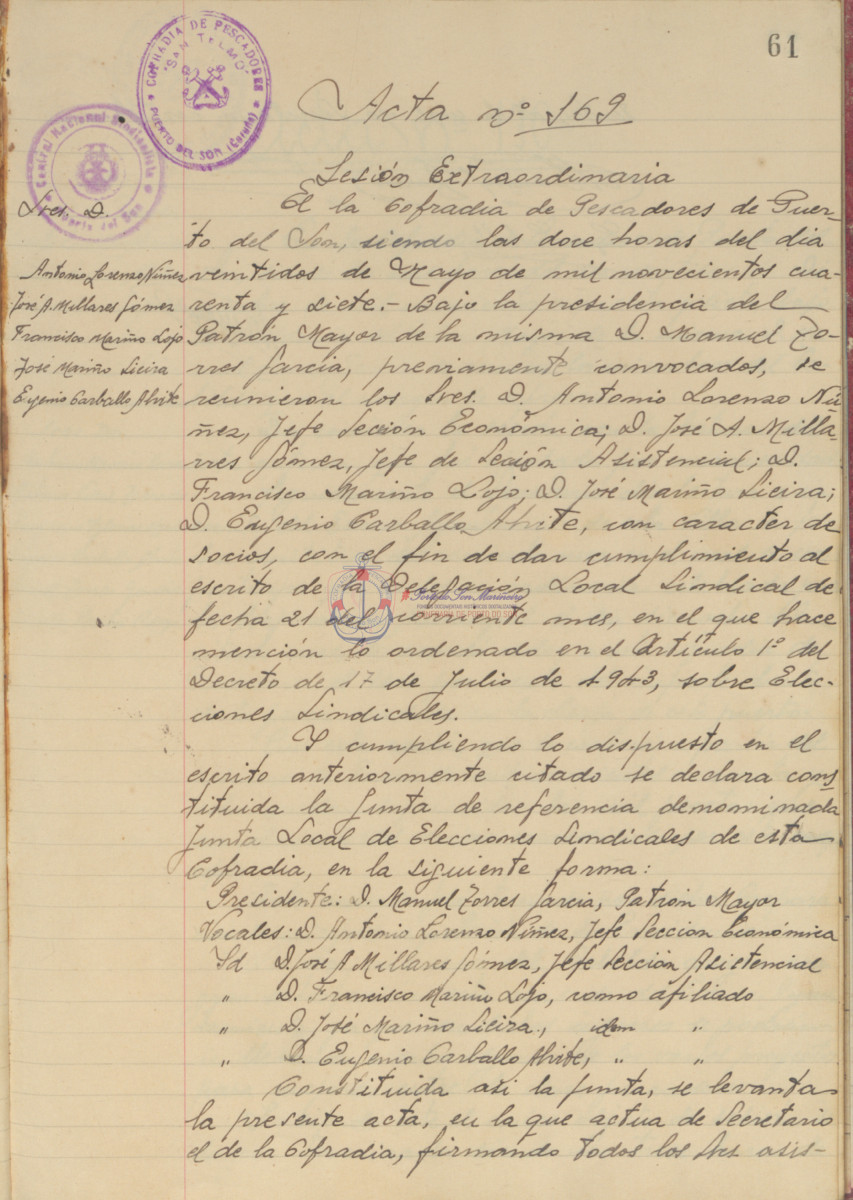 61
COFRADIA DE PESCADORES
"SAN TELMO"
PUERTO DEL SON (Coruña)
Central Nacional Sindicalista
Puerto del Son
Acta nº 169
Sesión Extraordinaria
Sres. D.
Antonio Lorenzo Núñez
José A. Millares Gómez
Francisco Mariño Lojo
José Mariño Sieira
Eugenio Carballo Ahite
El la Cofradia de Pescadores de Puer-
to del Son, siendo las doce horas del dia
veintidos de Mayo de mil novecientos cua-
renta y siete.- Bajo la presidencia del
Patrón Mayor de la misma D. Manuel To-
rres Garcia, previamente convocados, se
reunieron los Sres. D. Antonio Lorenzo Nú-
ñez, Jefe Sección Económica; D. José A. Milla-
res Gómez, Jefe de Sección Asistencial; D.
Francisco Mariño Lojo; D. José Mariño Sieira;
D. Eugenio Carballo Ahite, con caracter de
socios, con el fin de dar cumplimiento al
escrito de la Delegación Local Sindical de
fecha 21 del corriente mes, en el que hace
mención lo ordenado en el Artículo 1º del
Decreto de 17 de Julio de 1943, sobre Elec-
ciones Sindicales.
Y cumpliendo lo dispuesto en el
escrito anteriormente citado se declara cons-
tituida la Junta de referencia denominada
Junta Local de Elecciones Sindicales de esta
Cofradia, en la siguiente forma:
Presidente: D. Manuel Torres Garcia, Patrón Mayor
Vocales: D. Antonio Lorenzo Núñez, Jefe Sección Económica
Id D. José A Millares Gómez, Jefe Sección Asistencial
" D. Francisco Mariño Lojo, como afiliado
" D. José Mariño Sieira, idem "
" D. Eugenio Carballo Ahite, " "
Constituida asi la Junta, se levanta
la presente acta, en la que actua de Secretario
el de la Cofradia, firmando todos los Sres asis-